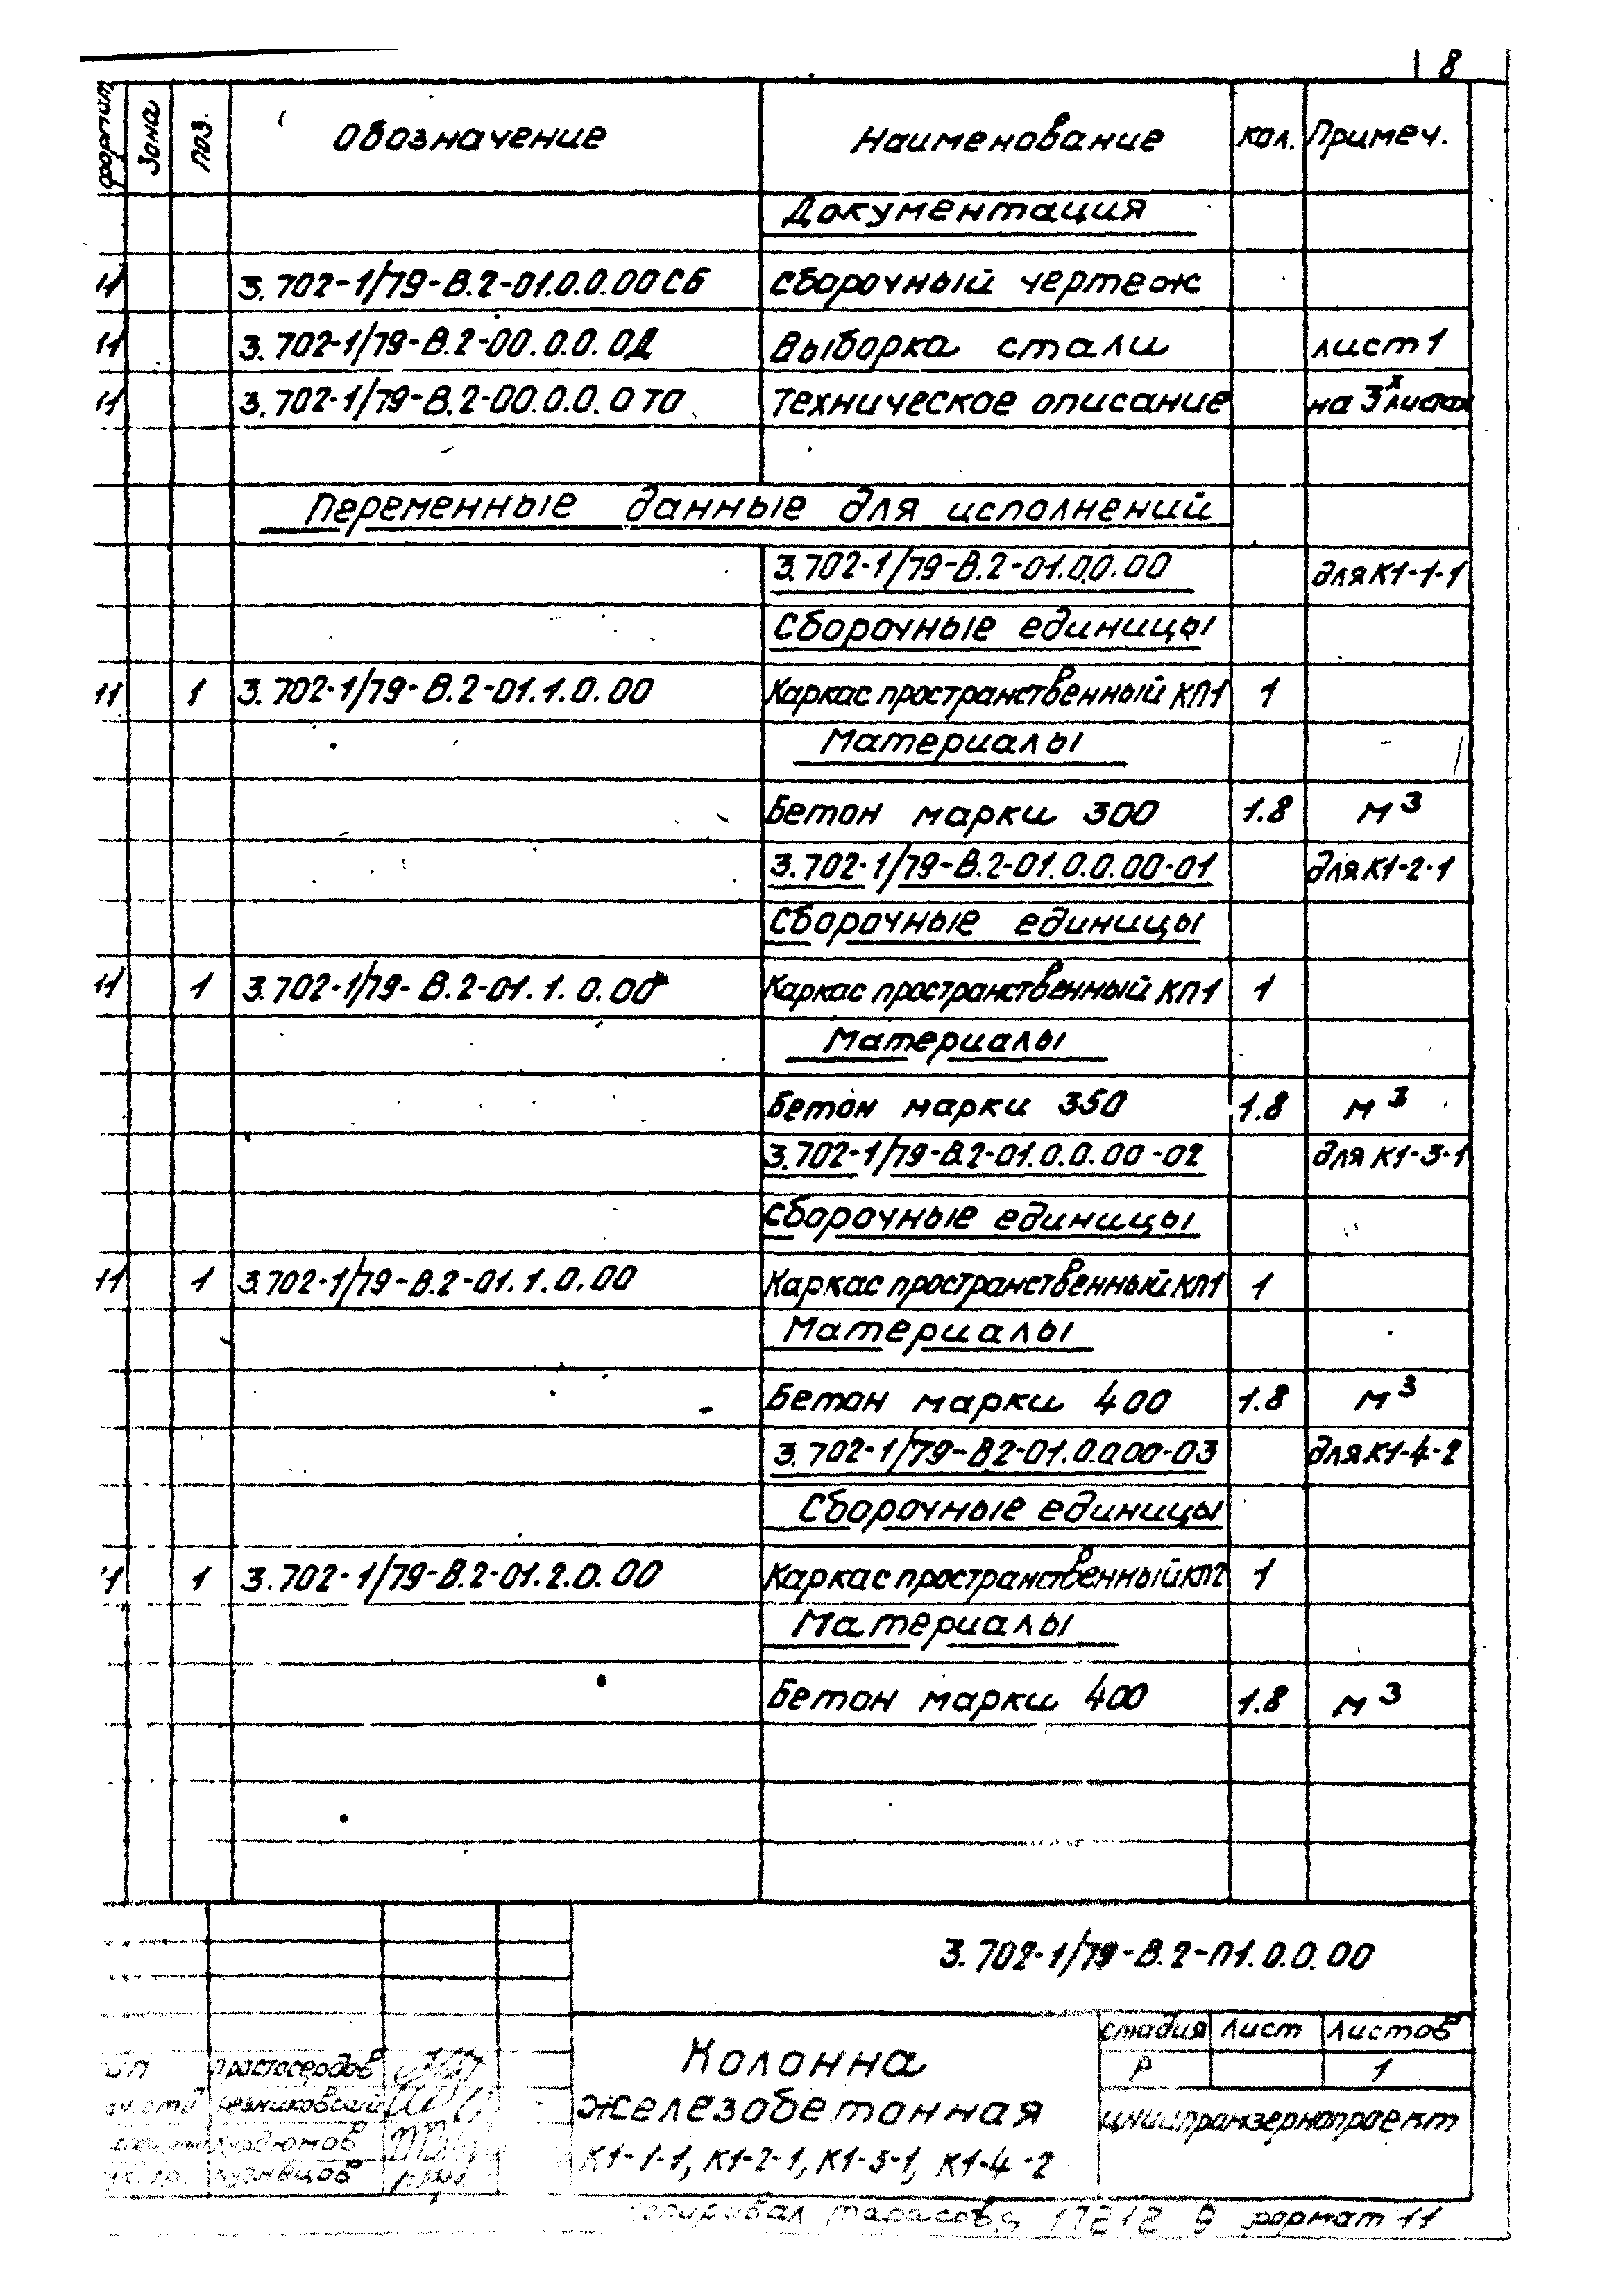 8
формат Зона Поз. Обозначение Наименование кол. Примеч.
Документация
11 3.702-1/79-В.2-01.0.0.00СБ Сборочный чертеж
11 3.702-1/79-В.2-00.0.0.0Д Выборка стали лист 1
11 3.702-1/79-В.2-00.0.0.0ТО Техническое описание на 3х листах
Переменные данные для исполнений
3.702-1/79-В.2-01.0.0.00 для К1-1-1
Сборочные единицы
11 1 3.702-1/79-В.2-01.1.0.00 Каркас пространственный КП1 1
Материалы
Бетон марки 300 1.8 м³
3.702-1/79-В.2-01.0.0.00-01 для К1-2-1
Сборочные единицы
11 1 3.702-1/79-В.2-01.1.0.00 Каркас пространственный КП1 1
Материалы
Бетон марки 350 1.8 м³
3.702-1/79-В.2-01.0.0.00-02 для К1-3-1
Сборочные единицы
11 1 3.702-1/79-В.2-01.1.0.00 Каркас пространственный КП1 1
Материалы
Бетон марки 400 1.8 м³
3.702-1/79-В.2-01.0.0.00-03 для К1-4-2
Сборочные единицы
11 1 3.702-1/79-В.2-01.2.0.00 Каркас пространственный КП2 1
Материалы
Бетон марки 400 1.8 м³
3.702-1/79-В.2-01.0.0.00
Колонна
железобетонная
К1-1-1, К1-2-1, К1-3-1, К1-4-2
стадия лист листов
Р 1
цниипромзернопроект
Простосердов
Резниковский
Курдюмов
Кузнецов
копировал тарасова 17212 9 формат 11